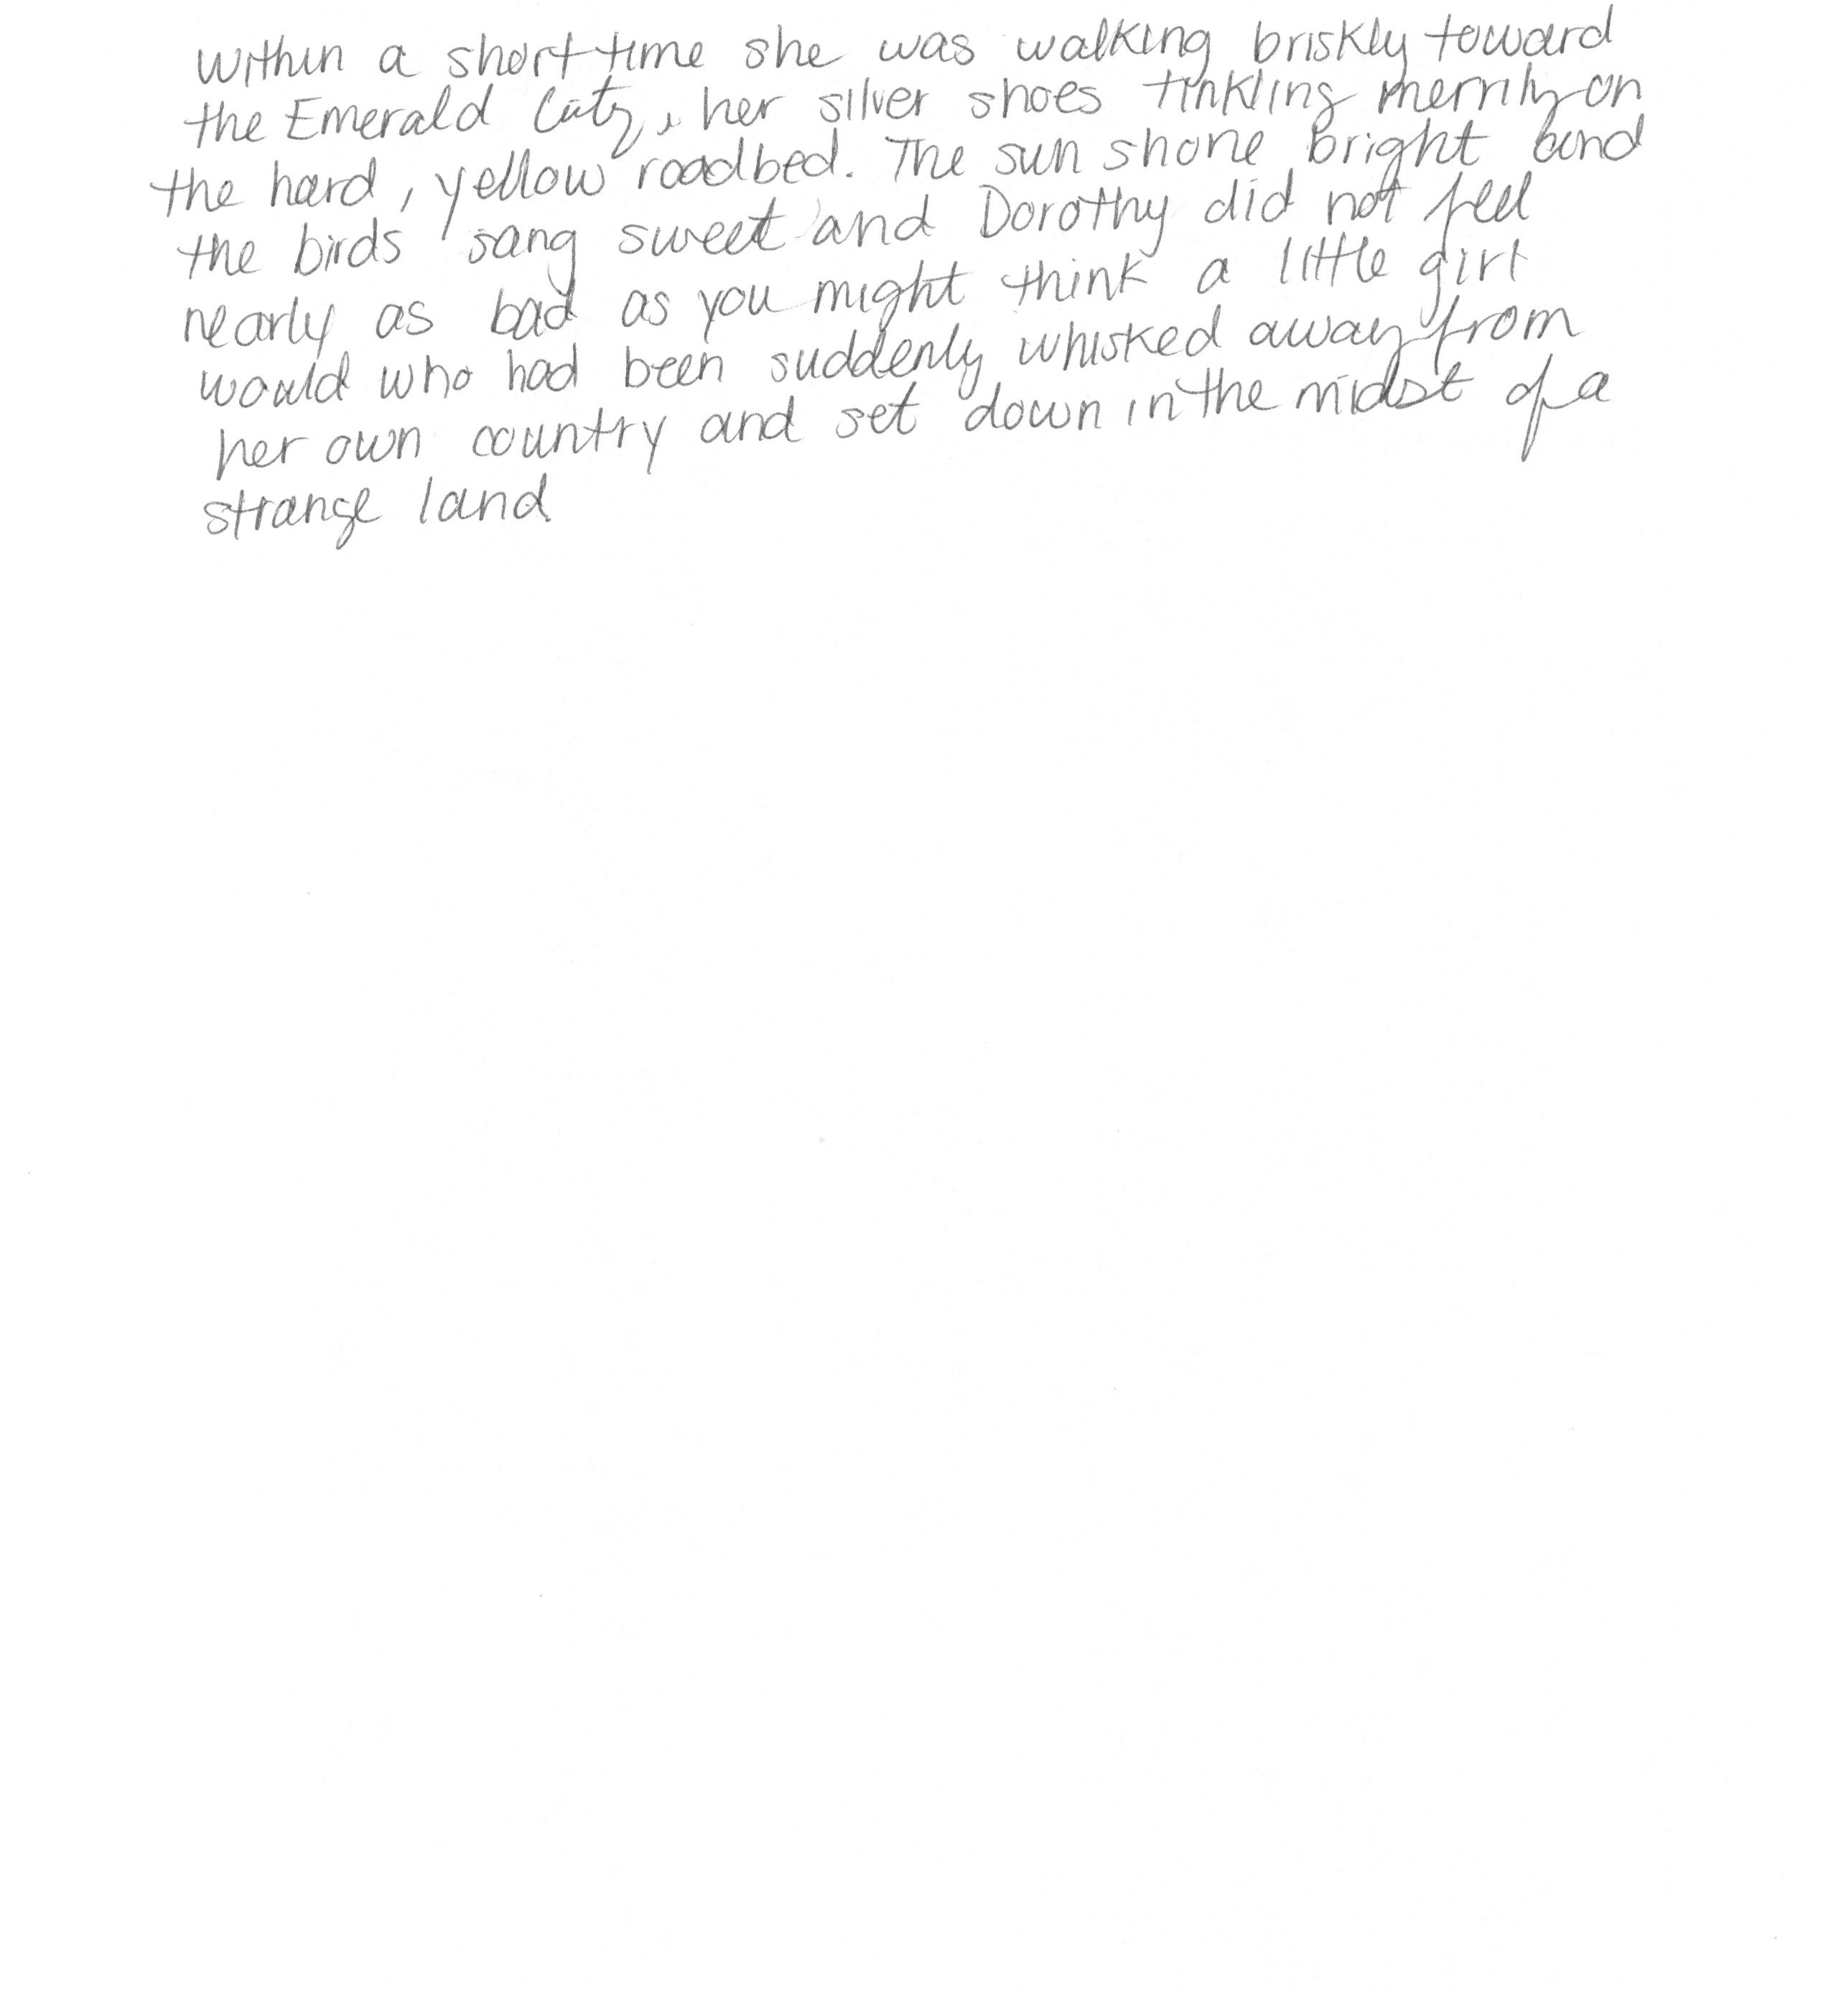 Within a short time she was walking briskly toward
the Emerald City, her silver shoes tinkling merrily on
the hard, yellow roadbed. The sun shone bright and
the birds sang sweet and Dorothy did not feel
nearly as bad as you might think a little girl
would who had been suddenly whisked away from
her own country and set down in the midst of a
strange land